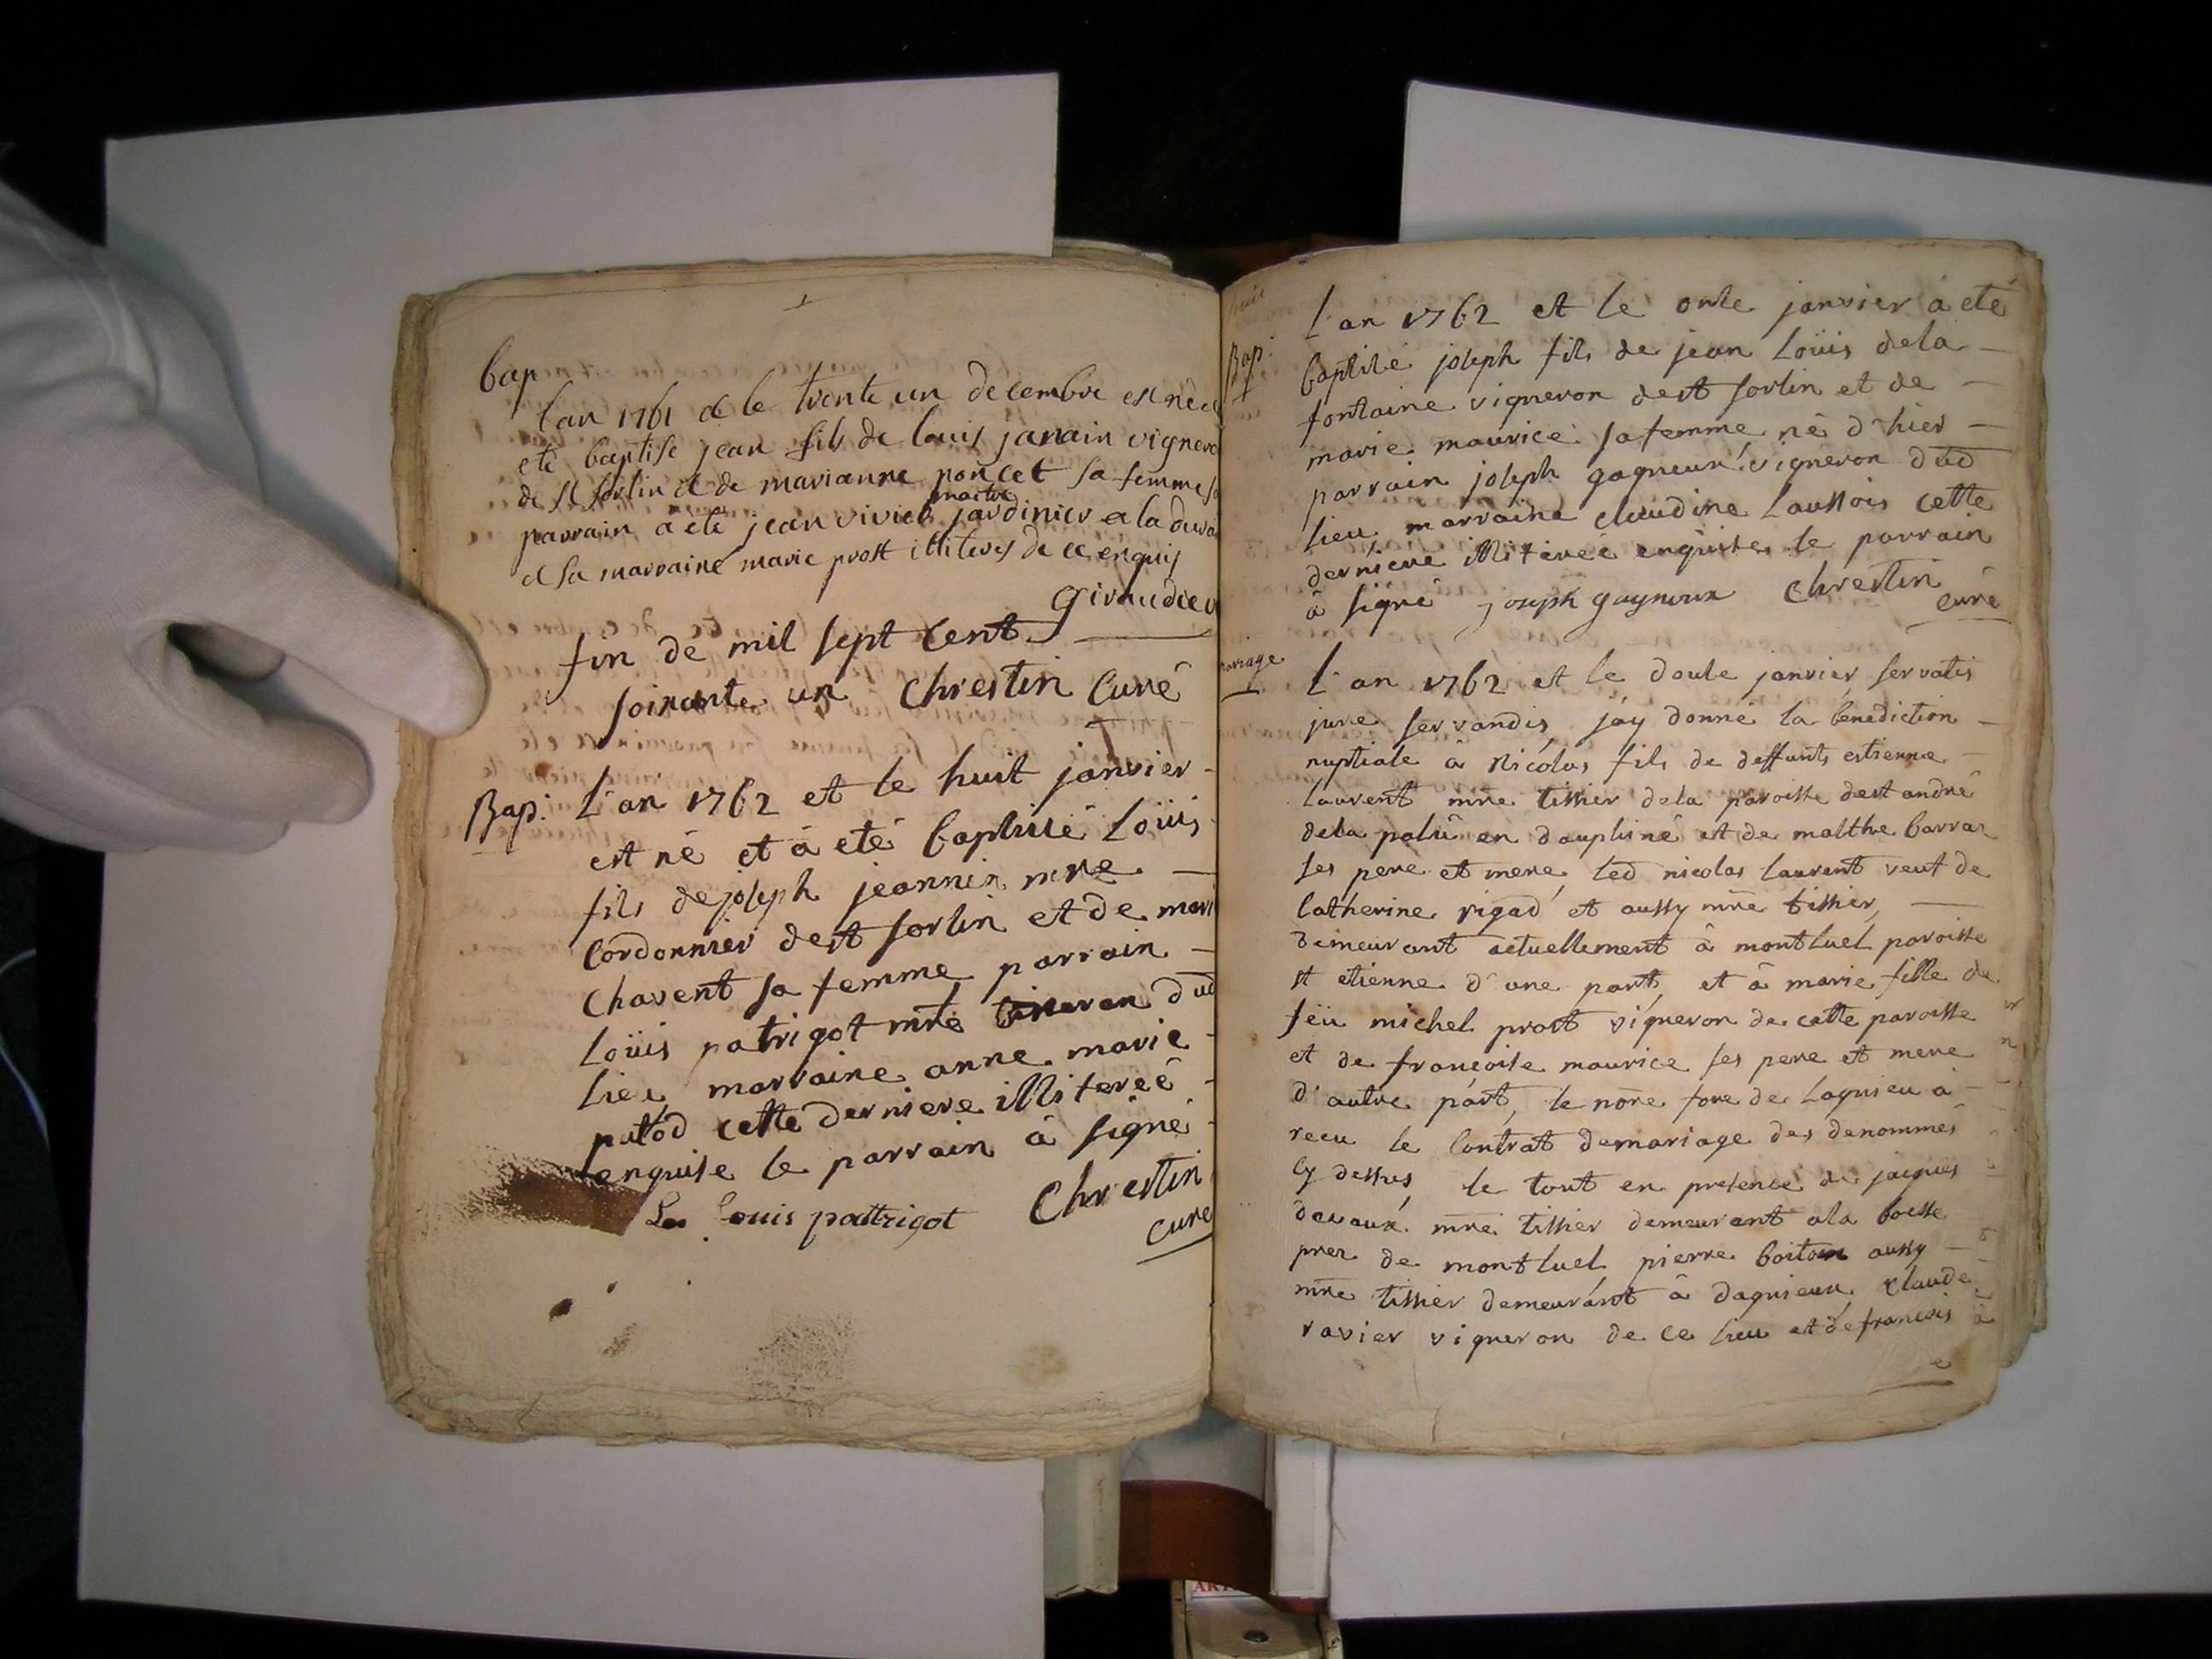 bap
l'an 1761 et le trente un decembre est né et
eté baptisé jean fils de louis janain vignero
de st sorlin et de marianne poncet sa femme so
maitre
parrain a eté jean viviel jardinier a la
et sa marraine marie prost illiterés de ce enquis
Giraudier
fin de mil sept cent
soixante un Chrestin Curé
Bap. L'an 1762 et le huit janvier
est né et à eté baptisé Loüis
fils de joseph jeannin mre
Cordonnier de st sorlin et de mari
Chavent sa femme parrain
Loüis patrigot mre dud
lieu marraine anne marie
putod cette derniere illitereé
enquise le parrain à signé
Louis pattrigot Chrestin
curé
L'an 1762 et le onse janvier à eté
Bap. baptisé joseph fils de jean Loüis dela
fontaine vigneron de st sorlin et de
marie maurice sa femme né d'hier
parrain joseph gagneux vigneron dud
lieu marraine claudine Laussois cette
derniere illitereé enquise le parrain
à signé joseph gagneux Chrestin
curé
mariage L'an 1762 et le douse janvier servatis
jure servandis, j'ay donné la benediction
nuptiale à Nicolas fils de deffunts estienne
laurent mre tissier dela paroisse de st andré
dela palû en dauphiné et de malthe barraz
ses pere et mere, led nicolas laurent veuf de
Catherine rigad et aussy mre tissier,
demeurant actuellement à montluel paroisse
st etienne d'une part, et à marie fille de
feü michel prost vigneron de cette paroisse
et de françoise maurice ses pere et mere
d'autre part, le nore fore de Lagnieu à
recu le Contrat de mariage des denommés
Cy dessus, le tout en presence de jacques
devaux mre tissier demeurant ala boesse
prez de montluel pierre boiton aussy
mre tissier demeurant à dagnieux, claude
ravier vigneron de ce lieu et de francois